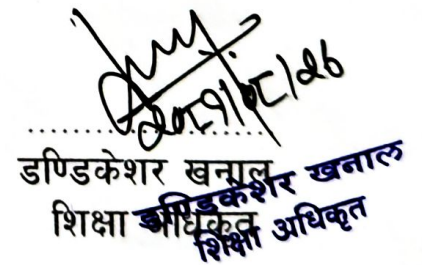 २०८१/०८/२७
डण्डिकेशर खनाल
शिक्षा अधिकृत
डण्डिकेशर खनाल
शिक्षा अधिकृत